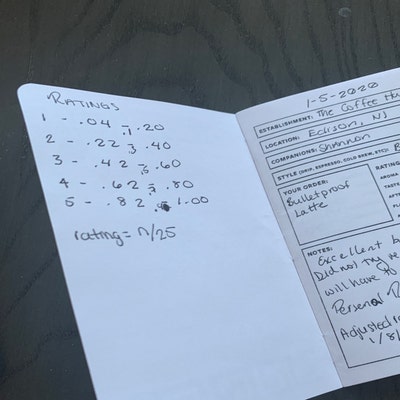 RATINGS
1 - .04 - .20
2 - .22 - .40
3 - .42 - .60
4 - .62 - .80
5 - .82 - 1.00
rating = n/25
1-5-2020
ESTABLISHMENT: The Coffee
LOCATION: Edison, NJ
COMPANIONS: Shannon
STYLE (DRIP, ESPRESSO, COLD BREW, ETC):
YOUR ORDER:
Bulletproof
Latte
RATING
AROMA
NOTES:
Excellent
Did not try
will have
Personal
Adjusted
1/8/